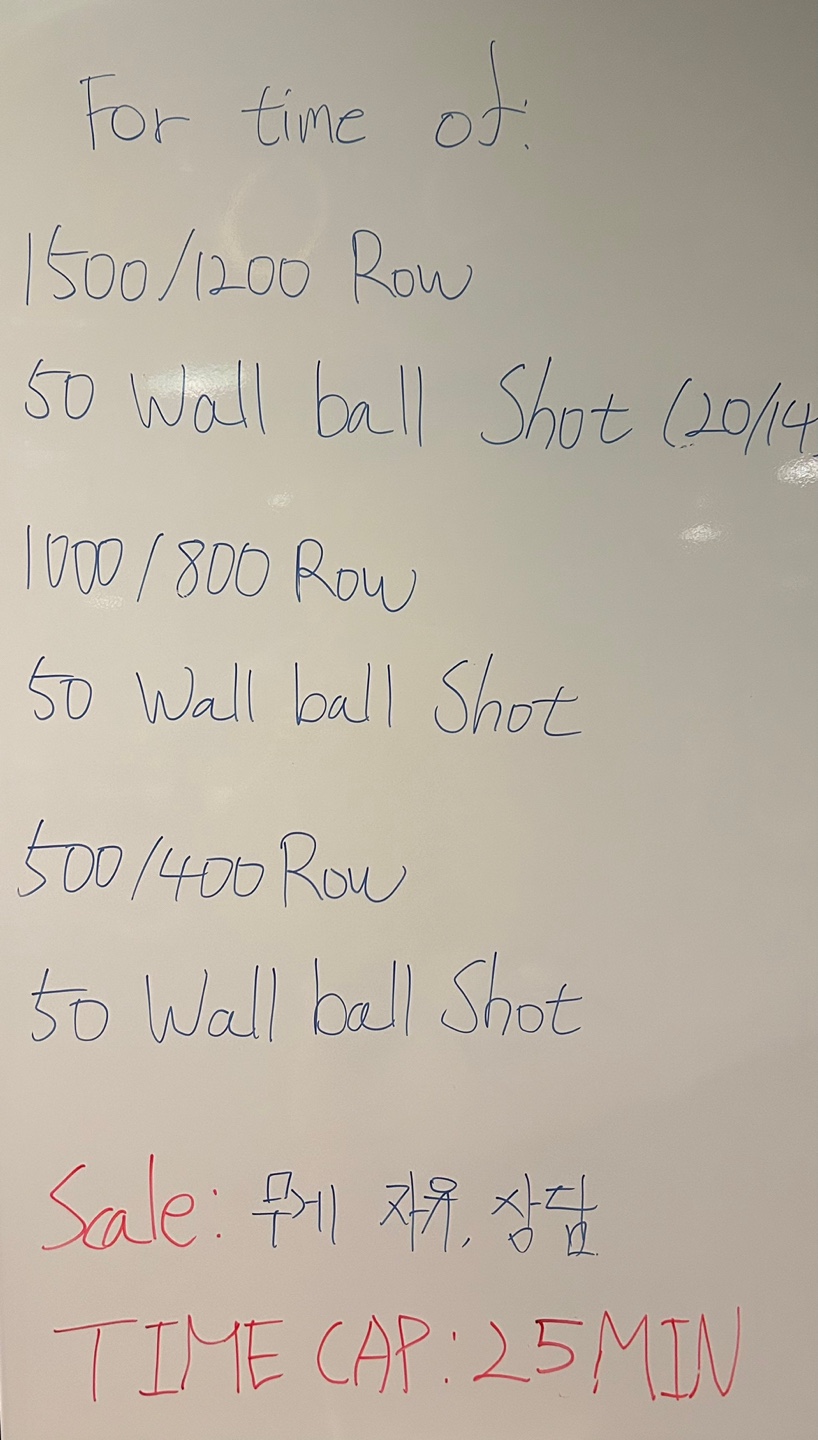 For time of:
1500/1200 Row
50 Wall ball Shot (20/14)
1000/800 Row
50 Wall ball Shot
500/400 Row
50 Wall ball Shot
Scale: 무게 자유, 상담
TIME CAP: 25MIN